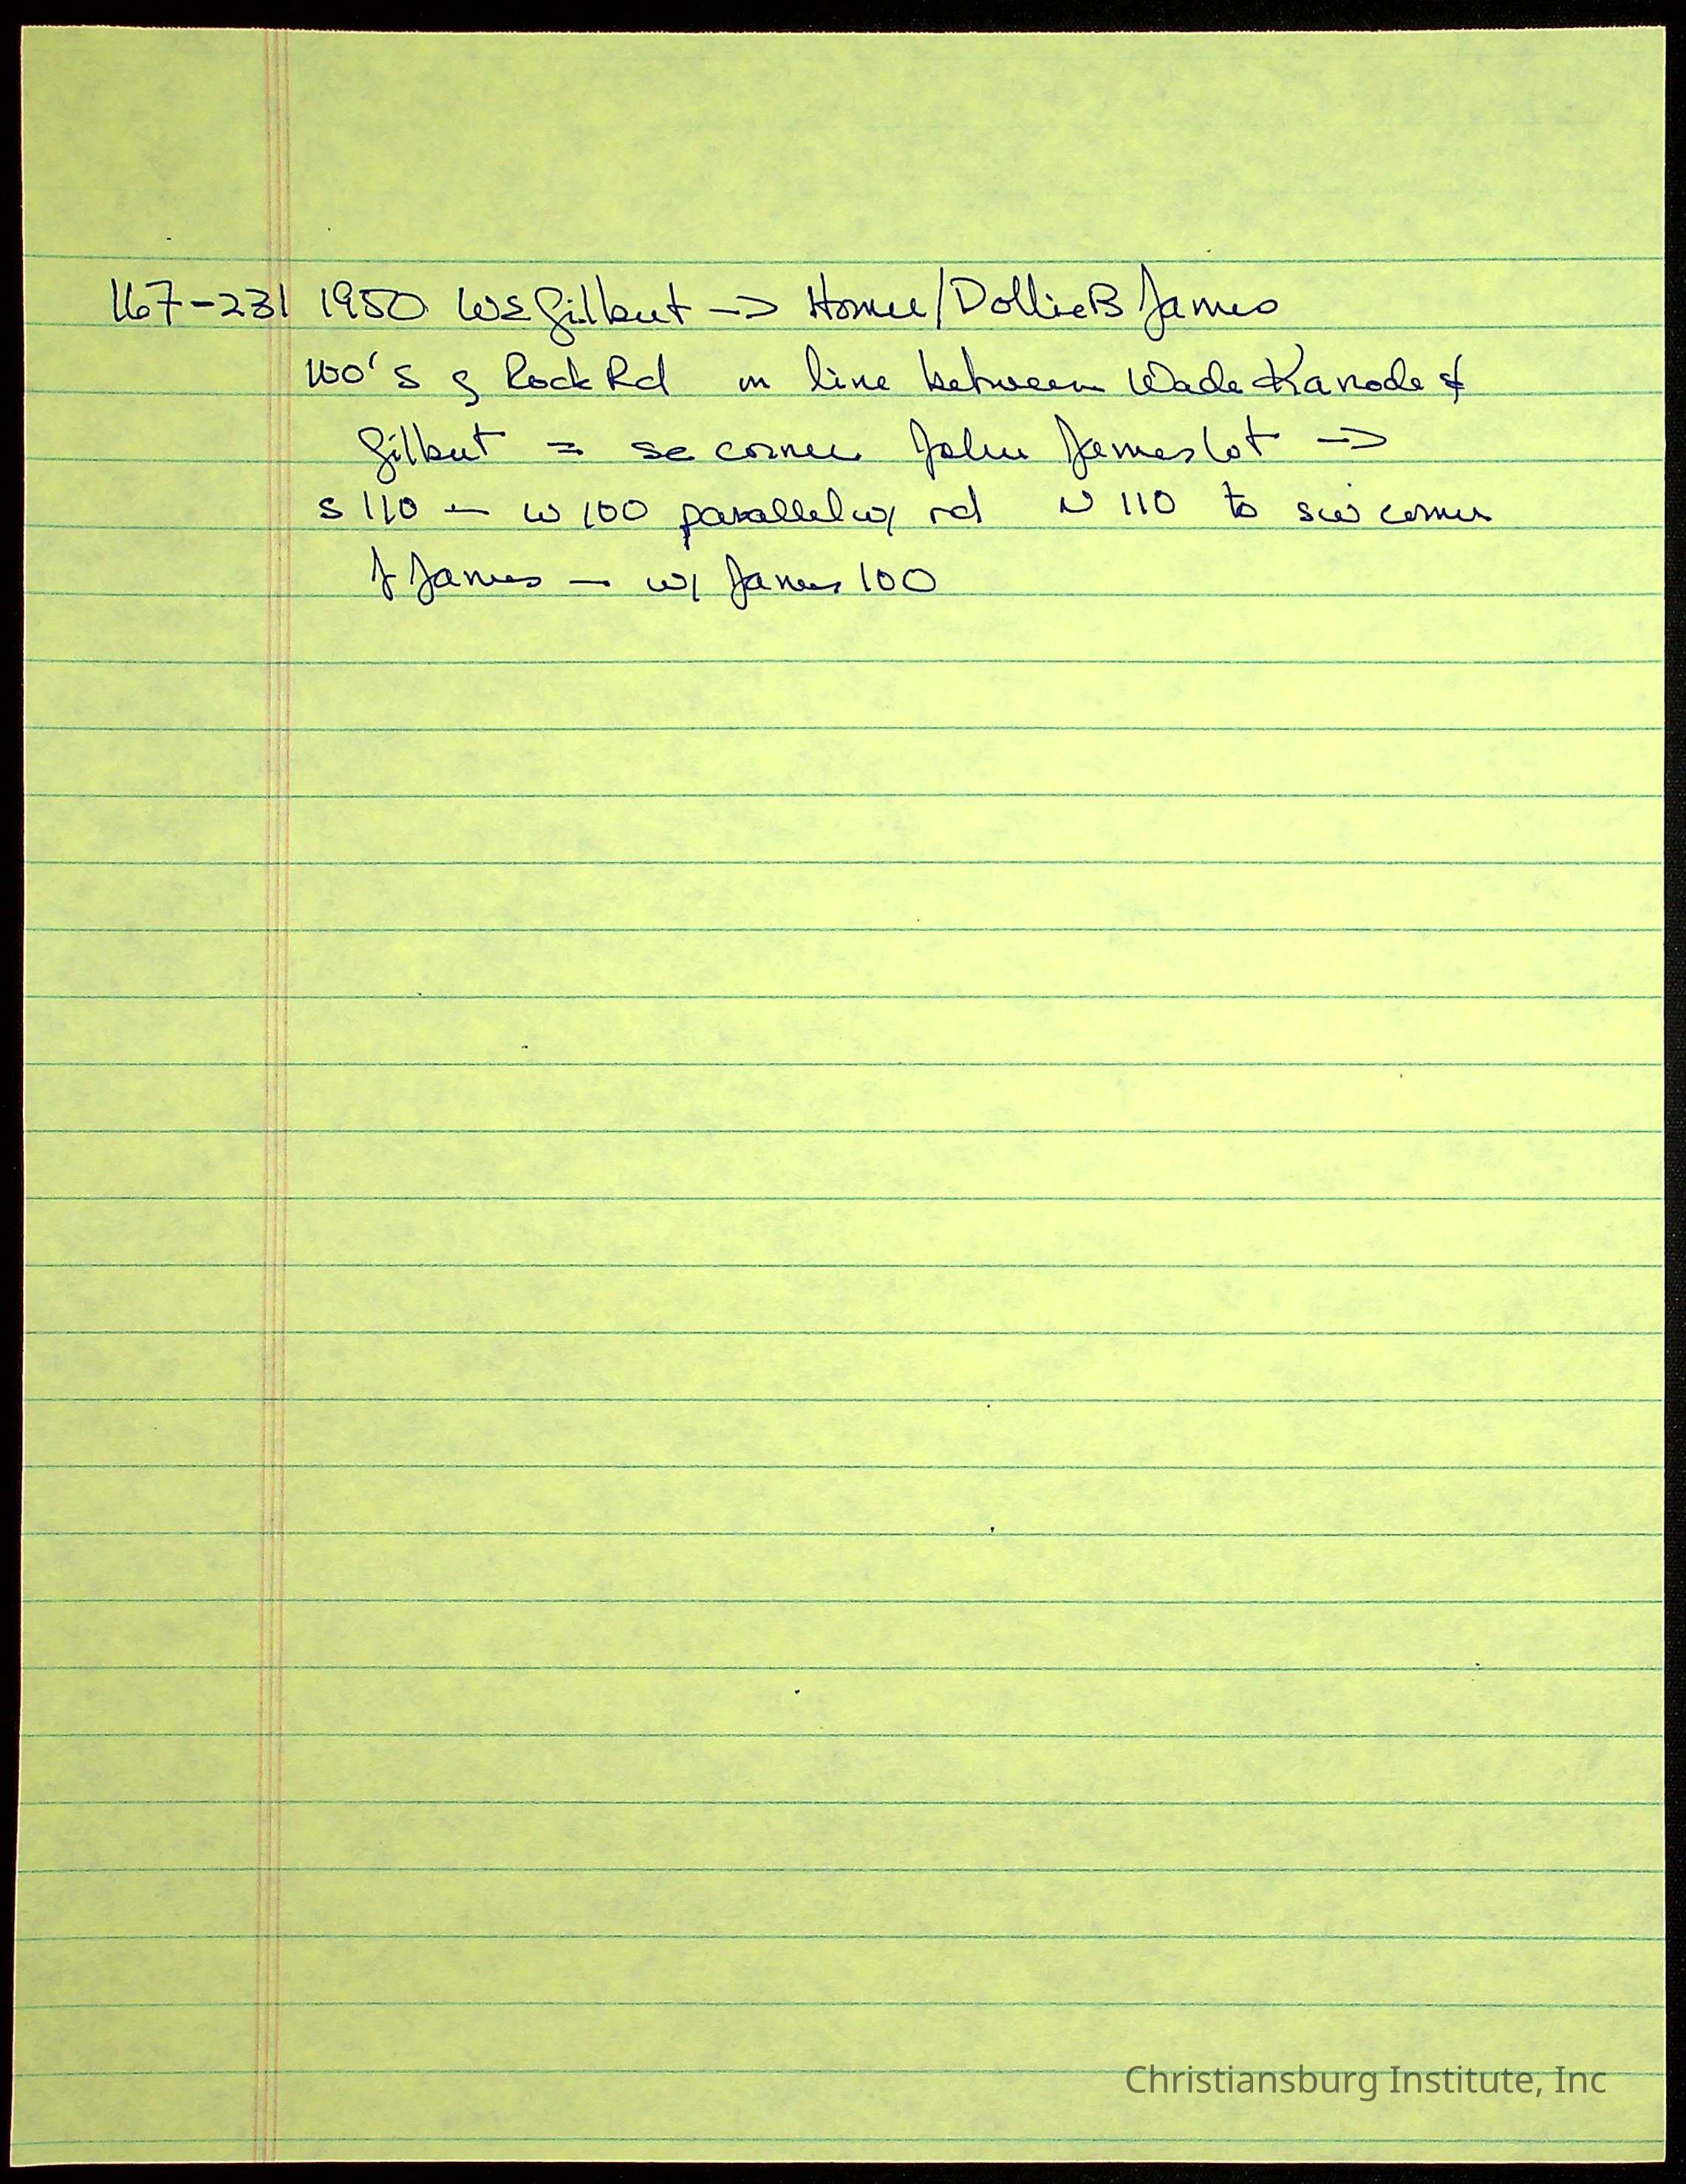 167-231 1950 WE Gilbert -> Homer/Dollie B James
100' S of Rock Rd on line between Wade Kanode &
Gilbert = se corner John James lot ->
S 110 — W 100 parallel w/ rd N 110 to sw corner
J James — w/ James 100
Christiansburg Institute, Inc